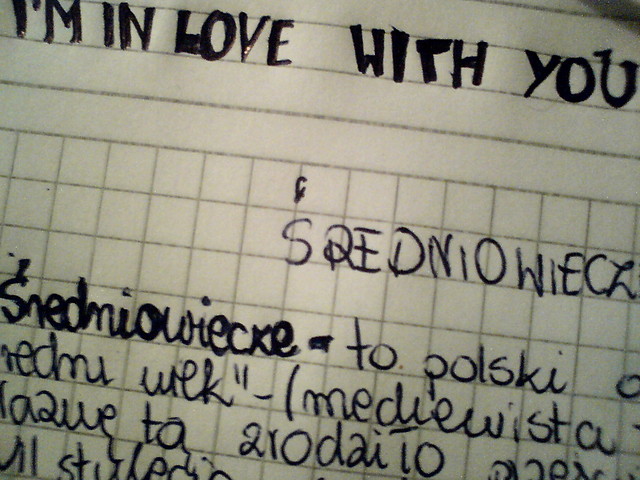 I'M IN LOVE WITH YOU
ŚREDNIOWIECZ
Średniowiecze - to polski o
redni wiek" - (mediewista
azwę tą zrodziło